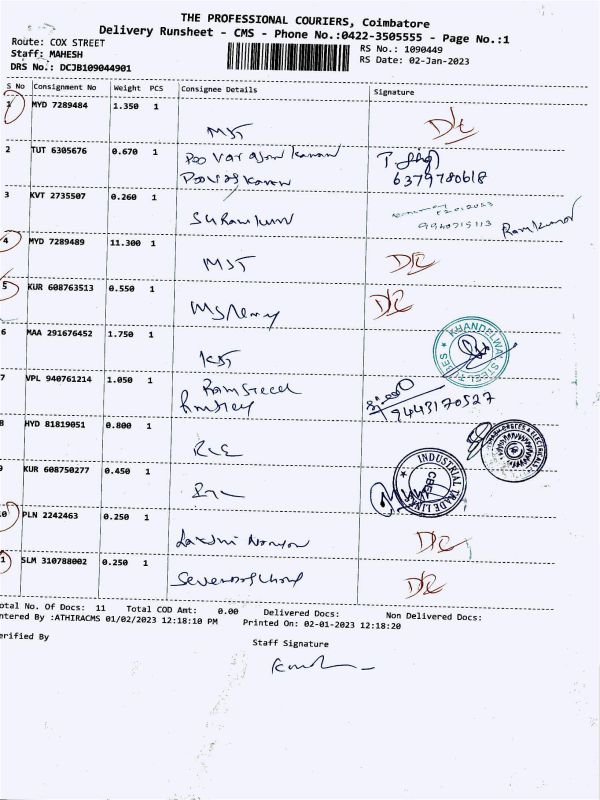 THE PROFESSIONAL COURIERS, Coimbatore
Delivery Runsheet - CMS - Phone No.:0422-3505555 - Page No.:1
Route: COX STREET
RS No.: 1090449
Staff: MAHESH
RS Date: 02-Jan-2023
DRS No.: DCJB109044901
S No Consignment No Weight PCS Consignee Details Signature
1 MYD 7289484 1.350 1
MJT D/C
2 TUT 6305676 0.670 1
6379780618
3 KVT 2735507 0.260 1
02012023
9940715113 Ramkumar
4 MYD 7289489 11.300 1
MJT D/C
5 KUR 608763513 0.550 1
D/C
6 MAA 291676452 1.750 1
KHANDELWAL STEEL TUBES
7 VPL 940761214 1.050 1
Ram Steel
9443170527
8 HYD 81819051 0.800 1
9 KUR 608750277 0.450 1
INDUSTRIAL TRADE LINK
CBE
0 PLN 2242463 0.250 1
D/C
1 SLM 310788002 0.250 1
D/C
otal No. Of Docs: 11 Total COD Amt: 0.00 Delivered Docs: Non Delivered Docs:
ntered By :ATHIRACMS 01/02/2023 12:18:10 PM Printed On: 02-01-2023 12:18:20
erified By
Staff Signature